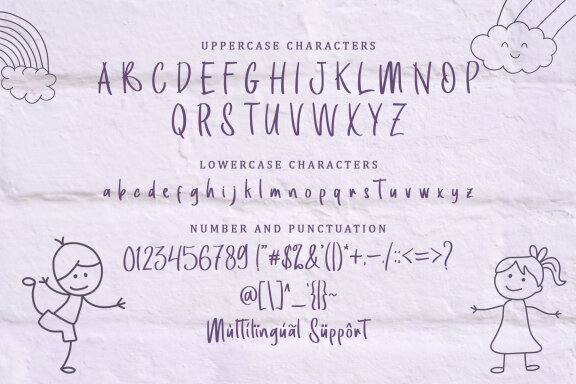 UPPERCASE CHARACTERS
ABCDEFGHIJKLMNOP
QRSTUVWXYZ
LOWERCASE CHARACTERS
abcdefghijklmnopqrstuvwxyz
NUMBER AND PUNCTUATION
0123456789 ("#$%&'()*+,-./:;<=>?
@[\]^_`{|}~
Mùltilingúãl Süppôrt